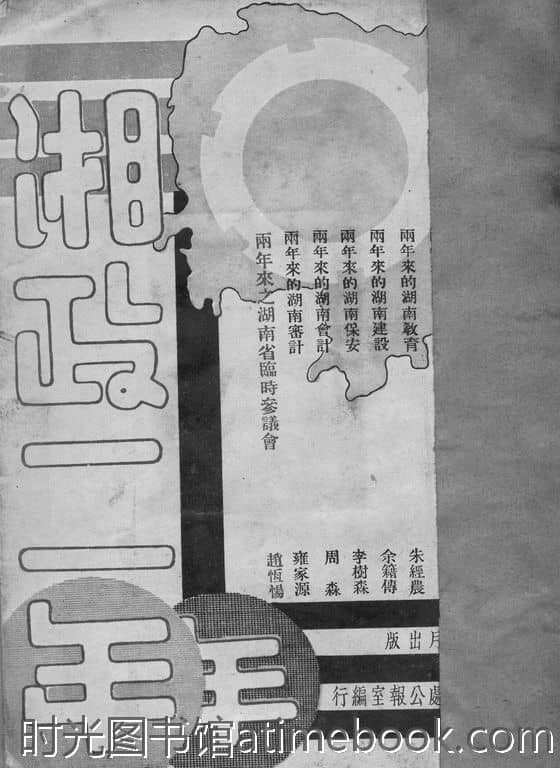 湘政二年
兩年來的湖南教育 朱經農
兩年來的湖南建設 余籍傳
兩年來的湖南保安 李樹森
兩年來的湖南會計 周森
兩年來的湖南審計 雍家源
兩年來之湖南省臨時參議會 趙恆惕
月出版
處公報室編行
年
时光图书馆atimebook.com